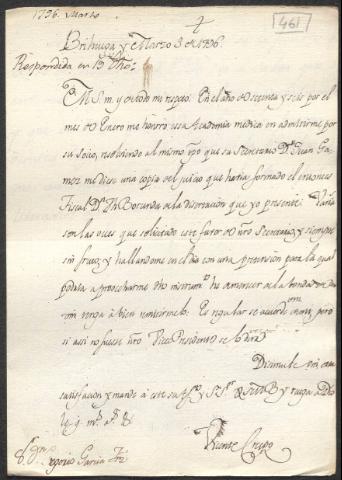 1796. Marzo
461
Brihuega y Marzo 8 de 1796.
Respondida en 13 dho.
M. S. m. y de todo mi respeto. En el año de setenta y seis por el
mes de Enero me honrró essa Academia medica en admitirme por
su socio, resolviendo al mismo tpo que su Secretario Dn. Juan Ga-
mez me diese una copia del juicio que havia formado el entonces
Fiscal Dn. Borunda de la disertacion que yo presenté. Varias
son las veces que solicitado este favor de nro Secretario, y siempre
sin fruto; y hallandome en el dia con una pretension para la qual
podria aprovecharme dho instrumto. he de merecer a la bondad de
vm tenga à bien remitirmelo. Es regular se acuerde vm pero
si assi no fuese nro Vice Presidente se lo dirá
Disimule vm esta
satisfaccion y mande à este su afto. y Sr. Q. S. M. B. y ruega a Dios
le g. ms. as.
Vicente Crespo
Sr. Dn. Gregorio Garcia Frz